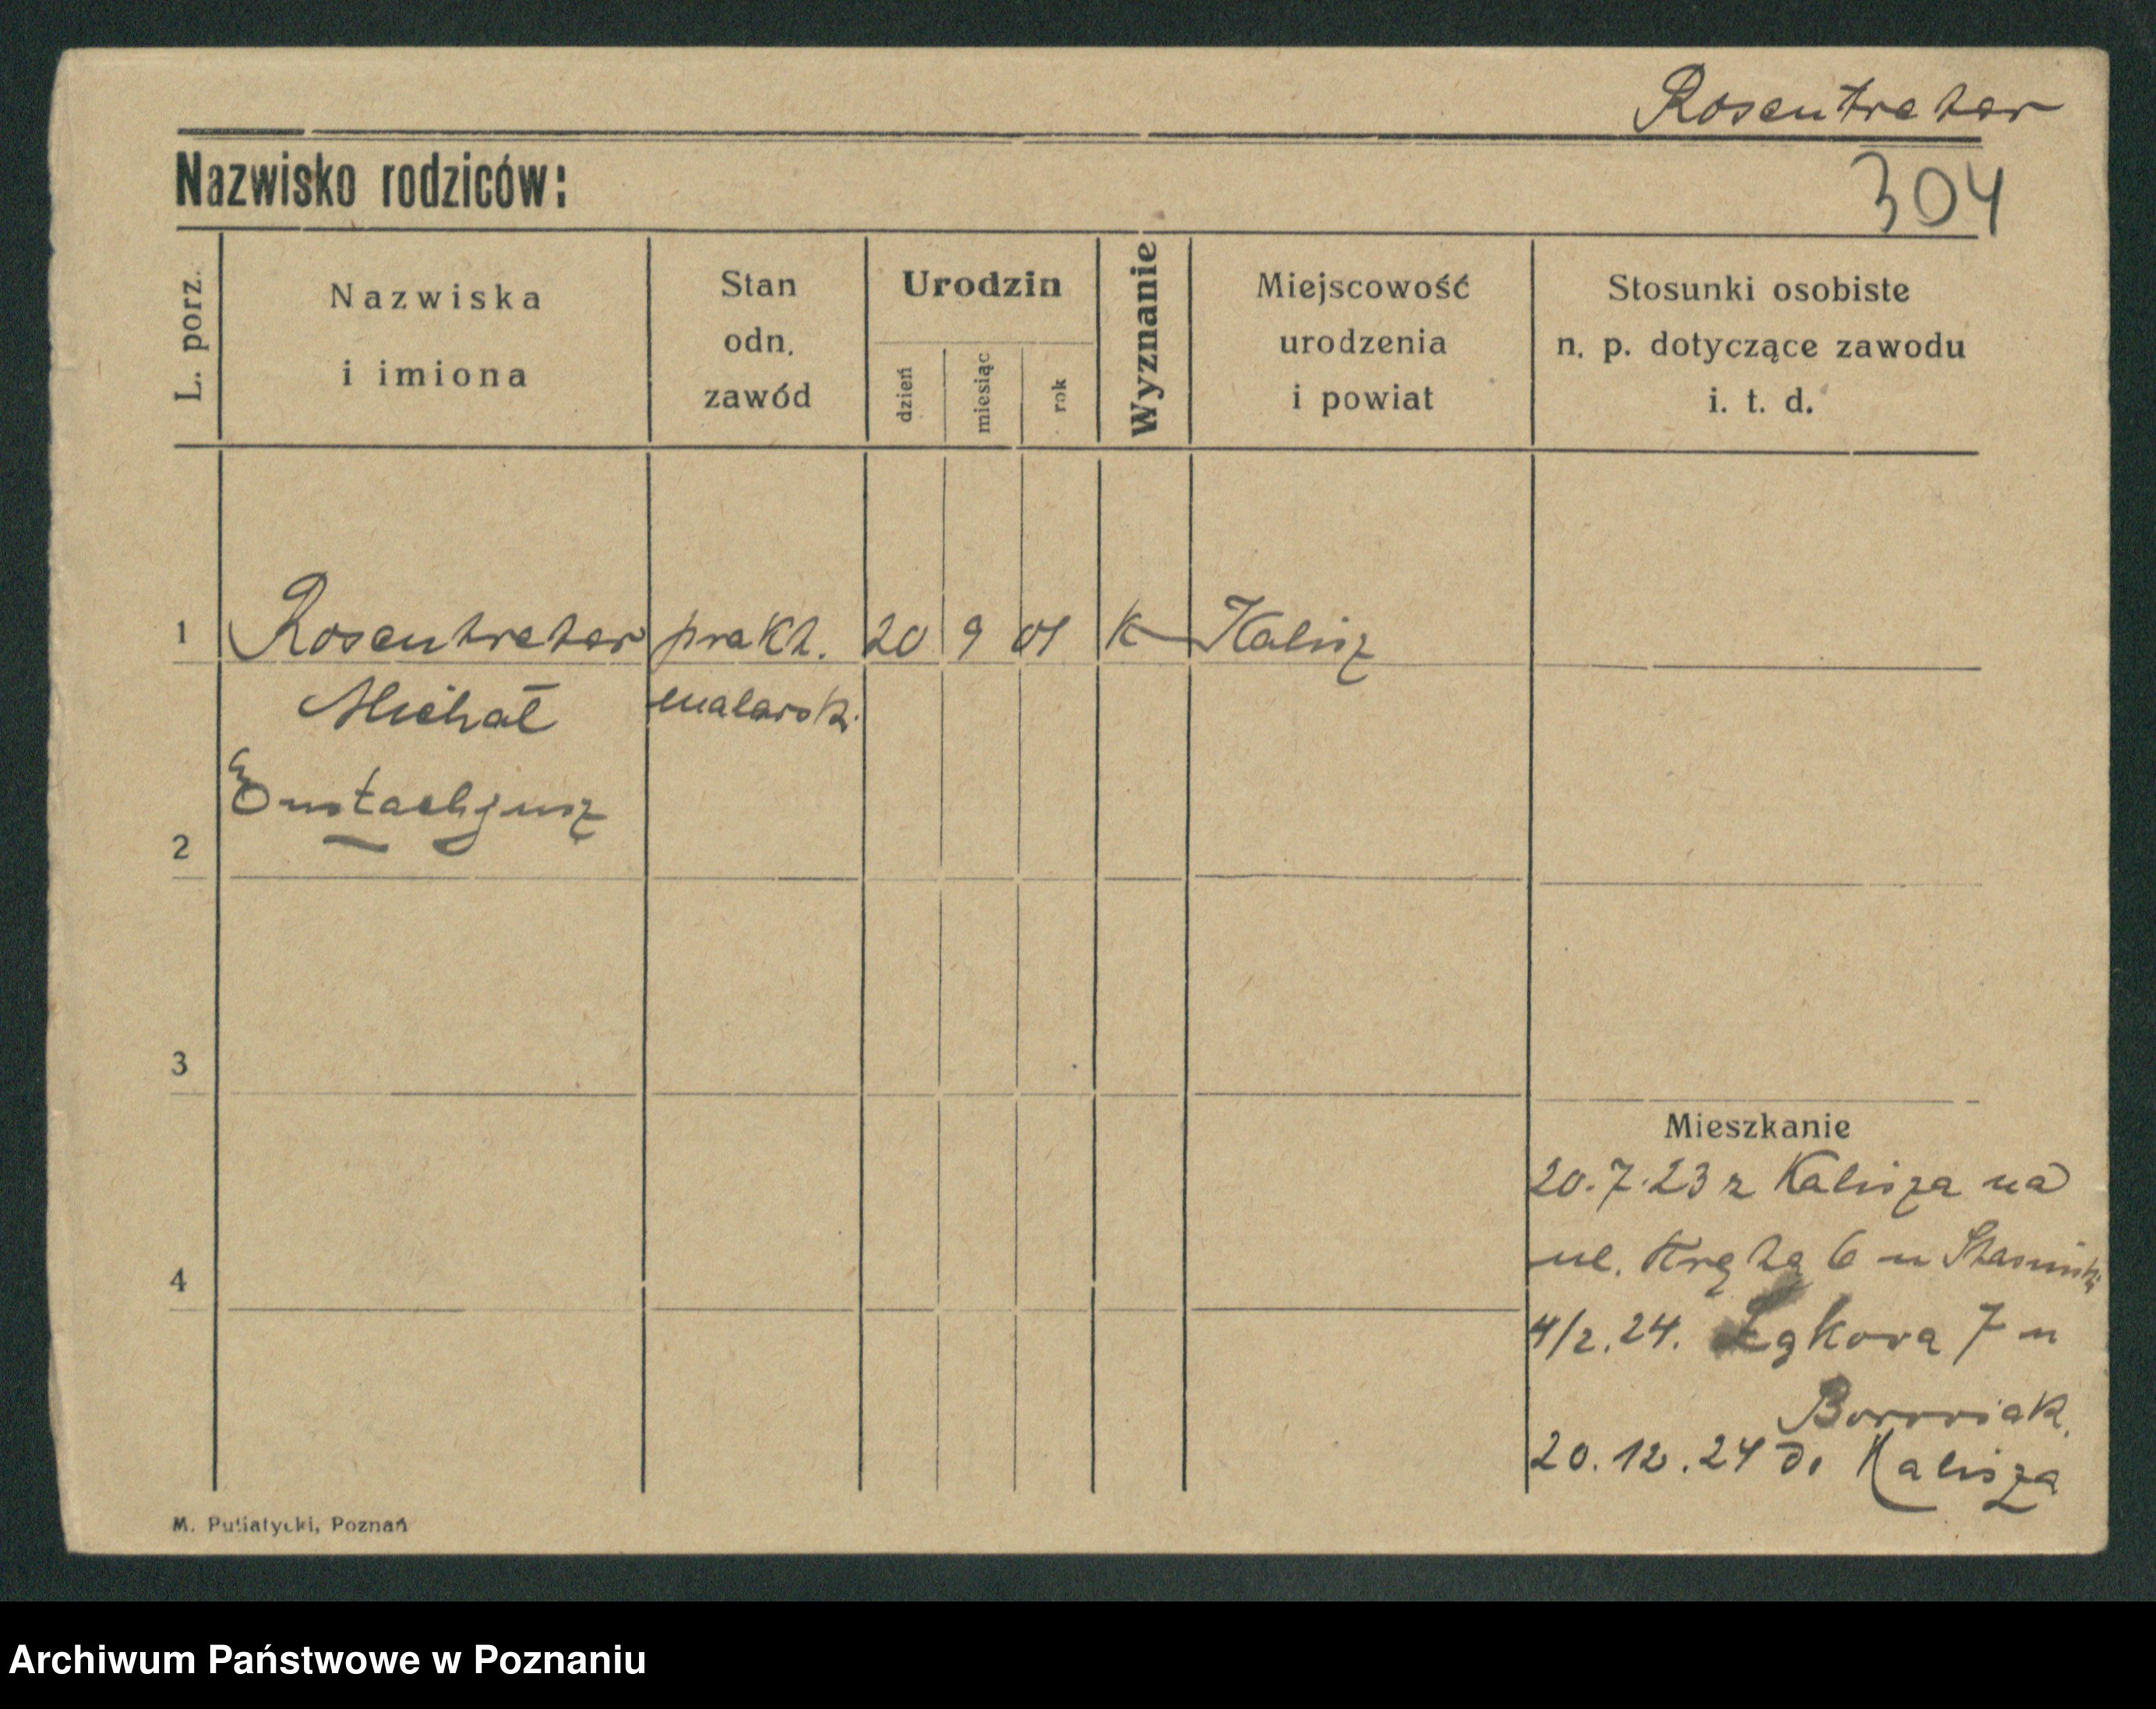 Rosentreter
304
Nazwisko rodziców:
L. porz.
Nazwiska
i imiona
Stan
odn.
zawód
Urodzin
dzień
miesiąc
rok
Wyznanie
Miejscowość
urodzenia
i powiat
Stosunki osobiste
n. p. dotyczące zawodu
i. t. d.
1 Rosentreter prakt. 20 9 01 k Kalisz
Michał malarsk.
Eustachjusz
2
3
Mieszkanie
20.7.23 z Kalisza na
ul. Krętą 6 u
4
4/2.24. Łąkova 7 u
Boroviak.
20.12.24 do Kalisza
M. Putiatycki, Poznań
Archiwum Państwowe w Poznaniu